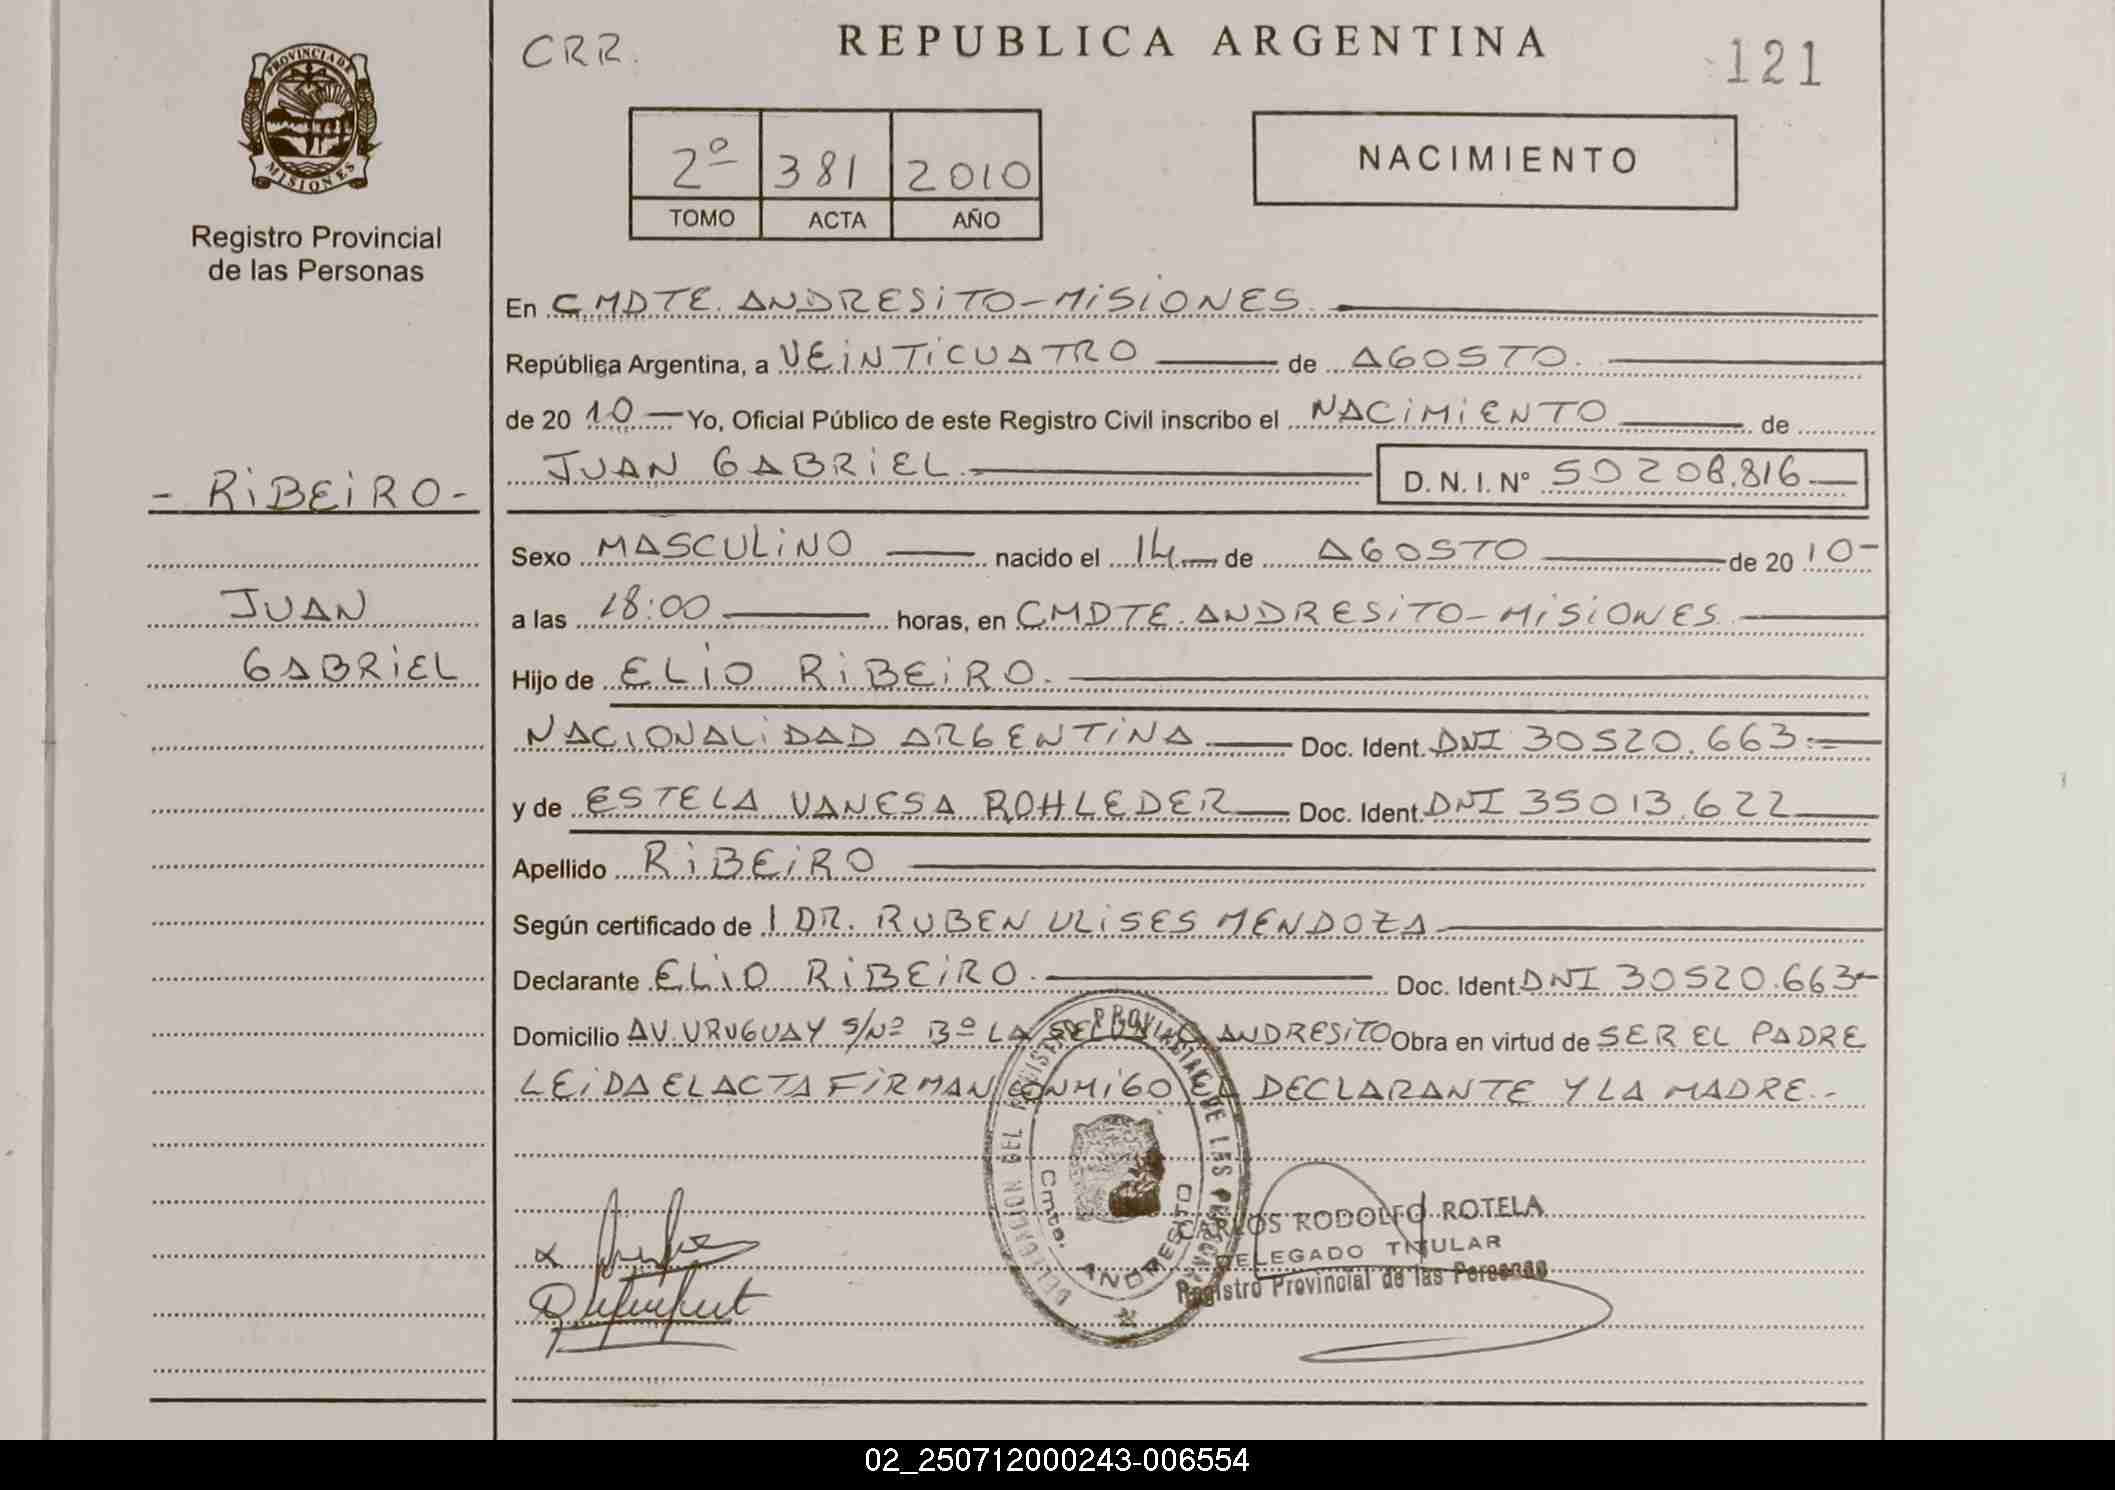 CRR.
REPUBLICA ARGENTINA
121
PROVINCIA DE
MISIONES
Registro Provincial
de las Personas
2º 381 2010
TOMO ACTA AÑO
NACIMIENTO
En CMDTE. ANDRESiTO-MiSiONES.
República Argentina, a VEiNTiCUATRO de AGOSTO.
de 20 10 Yo, Oficial Público de este Registro Civil inscribo el NACiMiENTO de
JUAN GABRiEL. D. N. I. Nº 50208.816
- RiBEiRO -
Sexo MASCULiNO nacido el 14 de AGOSTO de 20 10-
JUAN
a las 18:00 horas, en CMDTE. ANDRESiTO-MiSiONES.
GABRiEL
Hijo de ELiO RiBEiRO.
NACiONALiDAD ARGENTiNA Doc. Ident. DNI 30520.663.-
y de ESTELA VANESA ROHLEDER Doc. Ident. DNI 35013.622
Apellido RiBEiRO
Según certificado de 1 DR. RUBEN ULiSES MENDOZA
Declarante ELiO RiBEiRO. Doc. Ident. DNI 30520.663-
Domicilio AV. URUGUAY S/Nº Bº LA ANDRESiTO Obra en virtud de SER EL PADRE
LEiDA EL ACTA FiRMAN CONMiGO EL DECLARANTE Y LA MADRE.-
DELEGACION DEL REGISTRO PROVINCIAL DE LAS PERSONAS
Cmte. ANDRESITO
CARLOS RODOLFO ROTELA
DELEGADO TITULAR
Registro Provincial de las Personas
02_250712000243-006554